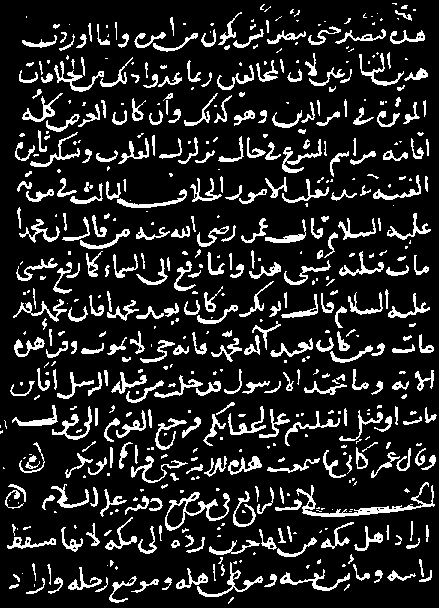 هذه فنصبر حتى نبصر ايش يكون من امره وانما اوردت
هذين التنازعين لان المخالفين ربما عدوا ذلك من الخلافات
الموثرة في امر الدين وهو كذلك وان كان الغرض كله
اقامة مراسم الشرع في حال تزلزل القلوب وتسكين نايرة
الفتنة عند تقلب الامور الخلاف الثالث في موته
عليه السلام قال عمر رضي الله عنه من قال ان محمدا
مات قتلته بسيفي هذا وانما رفع الى السماء كما رفع عيسى
عليه السلام قال ابو بكر من كان يعبد محمدا فان محمدا قد
مات ومن كان يعبد اله محمد فانه حي لا يموت وقرا هذه
الاية وما محمد الا رسول قد خلت من قبله الرسل افاين
مات او قتل انقلبتم على اعقابكم فرجع القوم الى قوله
وقال عمر كاني ما سمعت هذه الاية حتى قراها ابو بكر
الخلاف الرابع في موضع دفنه عليه السلام
اراد اهل مكة من المهاجرين رده الى مكة لانها مسقط
راسه ومانس نفسه وموطئ اهله وموضع رحله واراد